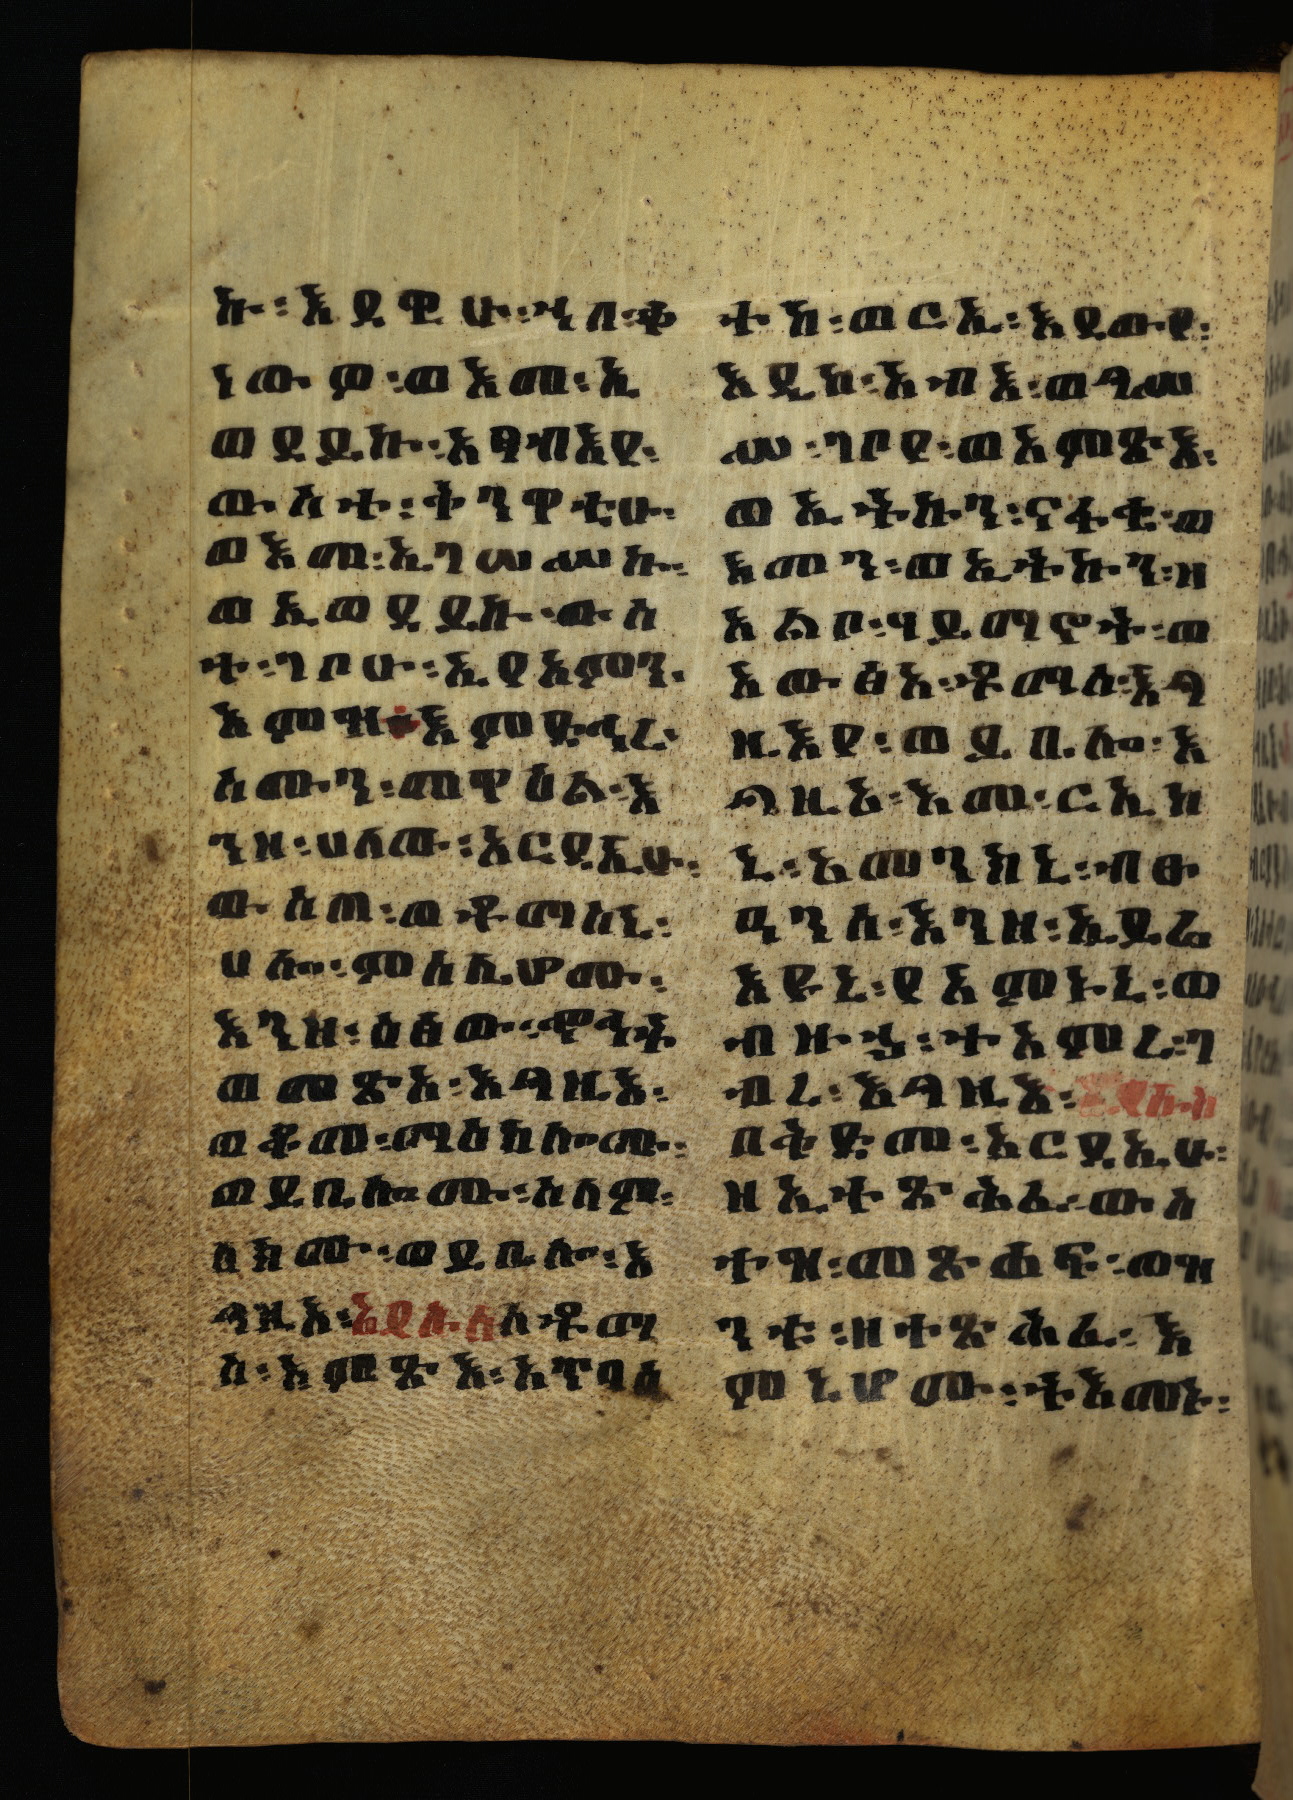 ኩ፡እደዊሁ፡ዲበ፡ቅ
ነውዎ፡ወእመ፡ኢ
ወደይኩ፡አፃብዕየ፡
ውስተ፡ቅንዋቲሁ፡
ወእመ፡ኢገሠሥኩ፡
ወኢወደይኩ፡ውስ
ተ፡ገቦሁ፡ኢየአምን፡
እምዝ፡እምድኅረ፡
ሰሙን፡መዋዕል፡እ
ንዘ፡ሀለው፡አርዳኢሁ፡
ውስጠ፡ወቶማስኒ፡
ሀሎ፡ምስሌሆሙ፡
እንዘ፡ዕፅው፡ኆኅት
ወመጽአ፡እግዚእ፡
ወቆመ፡ማዕከሎሙ፡
ወይቤሎሙ፡ሰላም፡
ለክሙ፡ወይቤሎ፡እ
ግዚእ፡ኢየሱስለቶማ
ስ፡አምጽእ፡አጽባዕ
ተከ፡ወርኢ፡እደውየ፡
እዴከ፡አብእ፡ወግሥ
ሥ፡ገቦየ፡ወአምጽእ፡
ወኢትኩን፡ናፋቂ፡ወ
እመን፡ወኢትኩን፡ዘ
አልቦ፡ሃይማኖት፡ወ
አውፅአ፡ቶማስ፡እግ
ዚእየ፡ወይቤሎ፡እ
ግዚእ፡አመ፡ርኢከ
ኒ፡አመንከኒ፡ብፁ
ዓንሰ፡እንዘ፡ኢይሬ
እዩኒ፡የአምኑኒ፡ወ
ብዙኃ፡ተአምረ፡ገ
ብረ፡እግዚእ፡ኢየሱስ
በቅድመ፡አርዳኢሁ፡
ዘኢተጽሕፈ፡ውስ
ተ፡ዝ፡መጽሐፍ፡ወዝ
ንቱ፡ዘተጽሕፈ፡እ
ምኒሆሙ፡ትእመኑ፡